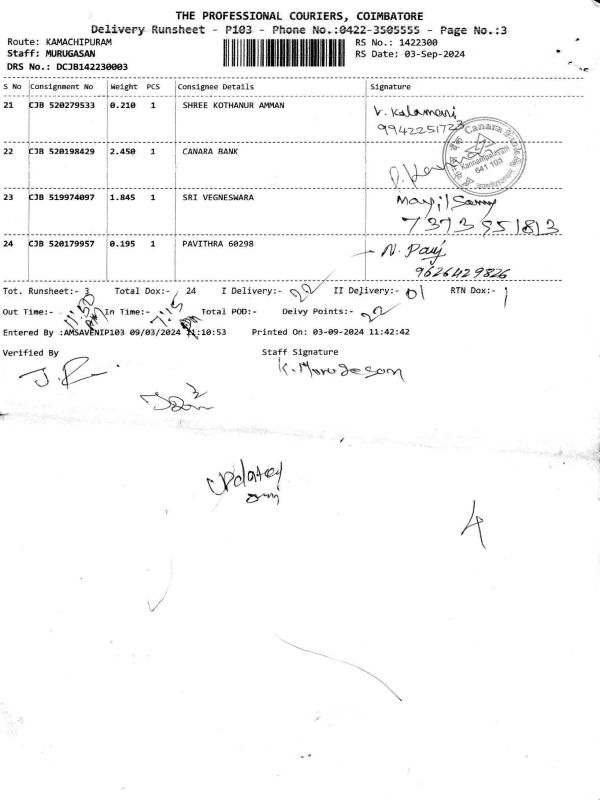 THE PROFESSIONAL COURIERS, COIMBATORE
Delivery Runsheet - P103 - Phone No.:0422-3505555 - Page No.:3
Route: KAMACHIPURAM
RS No.: 1422300
Staff: MURUGASAN
RS Date: 03-Sep-2024
DRS No.: DCJB142230003
S No Consignment No Weight PCS Consignee Details Signature
21 CJB 520279533 0.210 1 SHREE KOTHANUR AMMAN V. Kalamani
9942251723
22 CJB 520198429 2.450 1 CANARA BANK
Canara
Kannampalayam
641 103
23 CJB 519974097 1.845 1 SRI VEGNESWARA Mayilsamy
7373951813
24 CJB 520179957 0.195 1 PAVITHRA 60298 N. Pavi
9626429826
Tot. Runsheet:- 3 Total Dox:- 24 I Delivery:- 22 II Delivery:- 01 RTN Dox:- 1
Out Time:- 11:50 AM In Time:- 7:15 PM Total POD:- Delvy Points:- 22
Entered By :AMSAVENIP103 09/03/2024 11:10:53 Printed On: 03-09-2024 11:42:42
Verified By Staff Signature
K. Murugesan
updated
4